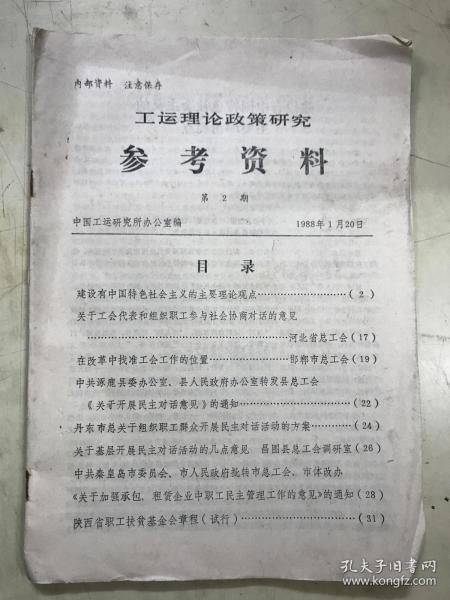 内部资料 注意保存
工运理论政策研究
参考资料
第2期
中国工运研究所办公室编 1988年1月20日
目录
建设有中国特色社会主义的主要理论观点…………………………(2)
关于工会代表和组织职工参与社会协商对话的意见
………………………………………………河北省总工会(17)
在改革中找准工会工作的位置………………………邯郸市总工会(19)
中共涿鹿县委办公室、县人民政府办公室转发县总工会
《关于开展民主对话意见》的通知………………………………(22)
丹东市总关于组织职工群众开展民主对话活动的方案…………(24)
关于基层开展民主对话活动的几点意见 昌图县总工会调研室(26)
中共秦皇岛市委员会、市人民政府批转市总工会、市体改办
《关于加强承包、租赁企业中职工民主管理工作的意见》的通知(28)
陕西省职工扶贫基金会章程(试行)……………………………(31)
孔夫子旧书网
www.kongfz.com